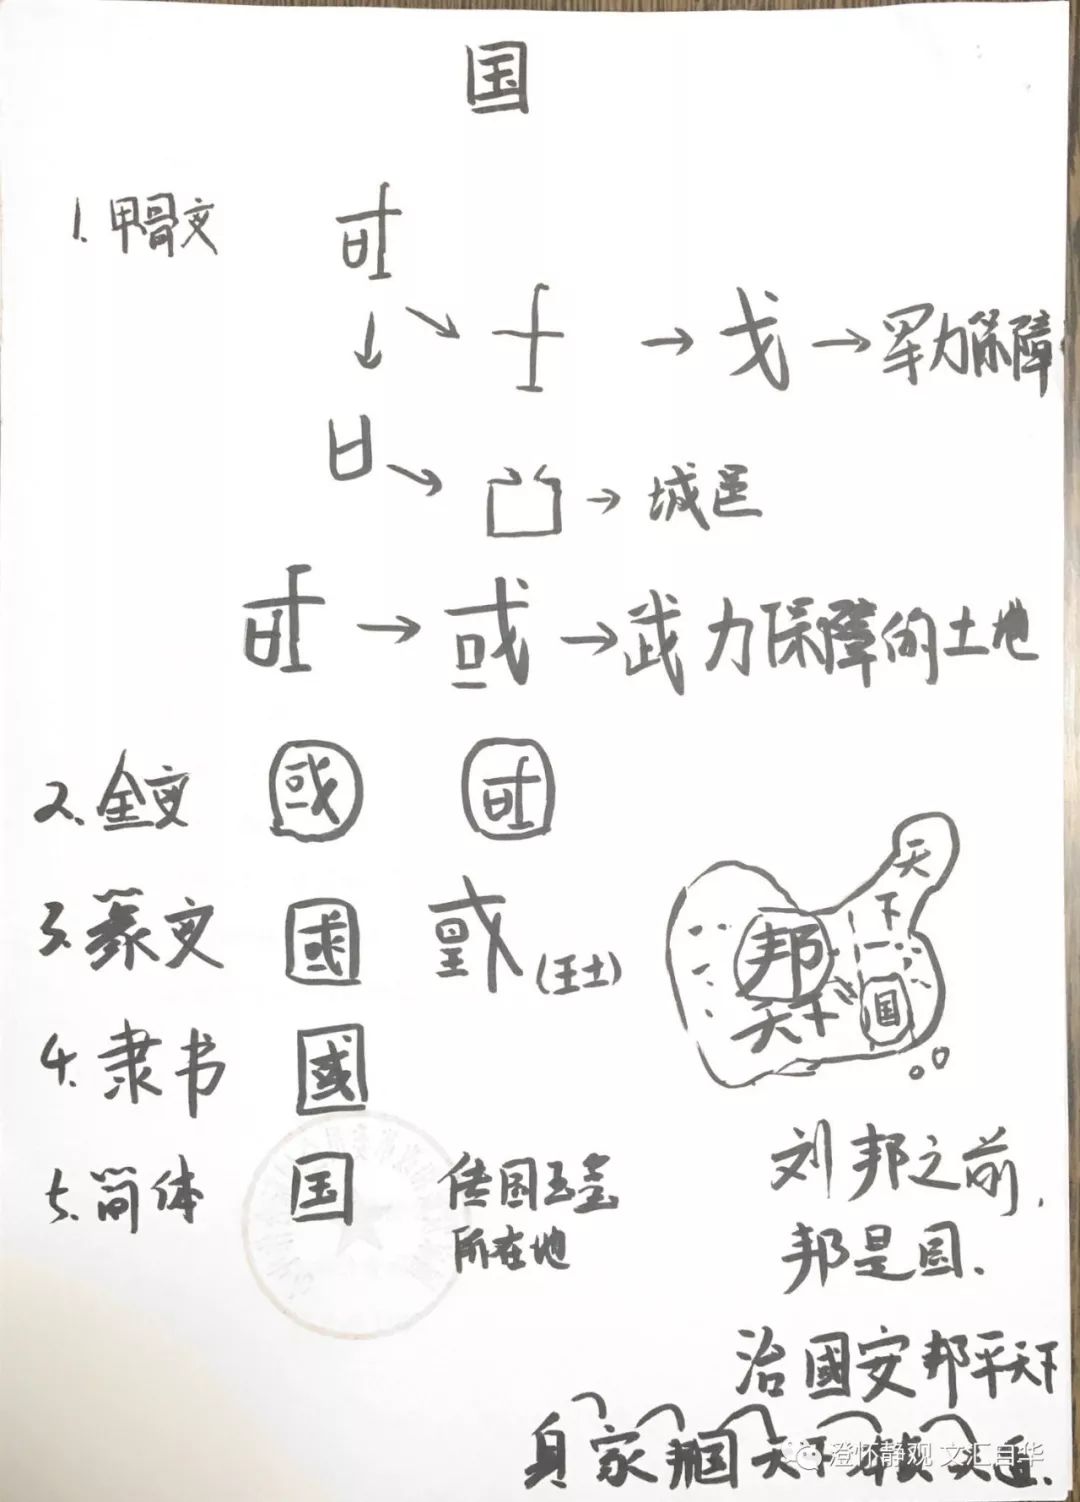 国
1. 甲骨文
→ 戈 → 军力保障
→ 城邑
→ 或 → 武力保障的土地
2. 金文 或
3. 篆文 國 或 (王土)
天
下
邦
天下
国
4. 隶书 國
5. 简体 国 传国玉玺
所在地
刘邦之前,
邦是国.
治國安邦平天下
身家邦国天下
澄怀静观 文汇日华